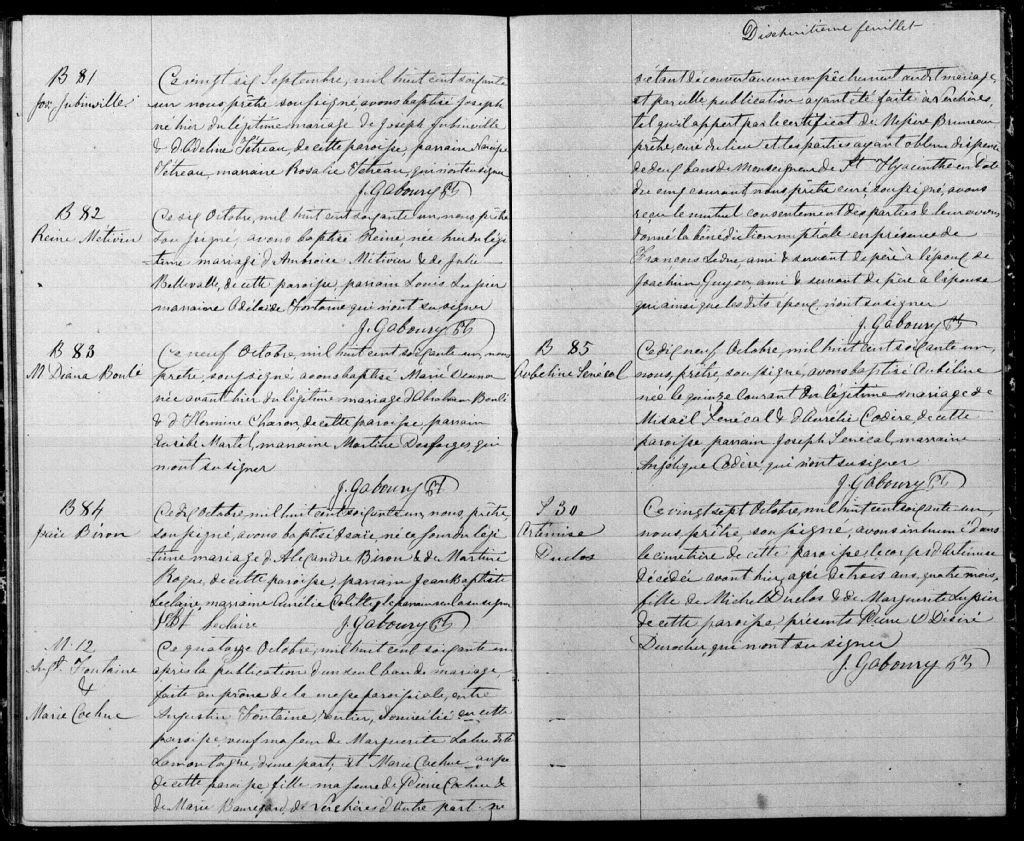 B 81
Jos. Jubinville
Ce vingt six Septembre, mil huit cent soixante
un nous prêtre soussigné avons baptisé Joseph
né hier du légitime mariage de Joseph Jubinville
& d'Odeline Tétreau, de cette paroisse, parrain
Tétreau, marraine Rosalie Tétreau, qui n'ont su signer
J. Gaboury Ptr
B 82
Reine Metivier
Ce six Octobre, mil huit cent soixante un, nous prêtre
soussigné, avons baptisé Reine, née hier du légi
-time mariage d'Ambroise Métivier & de Julie
Belleville, de cette paroisse parrain Louis Lupien
marraine Adelaide Fontaine qui n'ont su signer
J. Gaboury Ptr
B 83
M Diana Boulé
Ce neuf Octobre, mil huit cent soixante un, nous
prêtre, soussigné, avons baptisé Marie Deanna
née avant hier du légitime mariage d'Abraham Boulé
& d'Hermine Charon, de cette paroisse parrain
Martel, marraine Martine Desforges, qui
n'ont su signer
J. Gaboury Pt
B 84
Biron
Ce dix Octobre, mil huit cent soixante un, nous, prêtre,
soussigné, avons baptisé Isaïe, né ce jour du légi
time mariage d'Alexandre Biron & de Martine
de cette paroisse, parrain Jean Baptiste
Leclaire, marraine Aurélie Colette, le parrain seul a su signer
J Bt Leclaire J. Gaboury Ptr
M. 12
Aug. Fontaine
&
Marie Cochue
Ce quatorze Octobre, mil huit cent soixante un
après la publication d'un seul ban de mariage,
faite au prône de la messe paroissiale, entre
Augustin Fontaine, rentier, domicilié en cette
paroisse, veuf majeur de Marguerite
Lamontagne, d'une part; et Marie Cochue aussi
de cette paroisse fille majeure de Pierre Cochue &
de Marie Beauregard, de Verchères d'autre part ne
Dischuitieme feuillet
s'étant découvert aucun empêchement au dit mariage,
et pareille publication ayant été faite à Verchères,
tel qu'il appert par le certificat de Messire Bruneau
prêtre, curé du lieu et les parties ayant obtenu dispense
de deux bans de Monseigneur de St Hyacinthe en date
du cinq courant, nous prêtre curé soussigné, avons
reçu le mutuel consentement des parties & leur avons
donné la bénédiction nuptiale en présence de
François ami & servant de père à l'époux de
Joachim Guyon ami & servant de père à l'épouse
qui ainsi que les dits époux n'ont su signer
J. Gaboury Pt
B 85
Aubeline Sénécal
Ce dix neuf Octobre, mil huit cent soixante un,
nous, prêtre, soussigné, avons baptisé Aubeline
née le quinze courant du légitime mariage de
Misaël Sénécal & d'Aurélie Codère de cette
paroisse parrain Joseph Senécal, marraine
Angélique Codère qui n'ont su signer
J. Gaboury Pt
S 30
Artémise
Duclos
Ce vingt sept Octobre, mil huit cent soixante un,
nous prêtre, soussigné, avons inhumé dans
le cimetière de cette paroisse, le corps d'Artémise
décédée avant hier, agée de trois ans, quatre mois,
fille de Michel Duclos & de Marguerite Lupien
de cette paroisse présents Pierre & Désiré
Durocher qui n'ont su signer
J. Gaboury Ptr